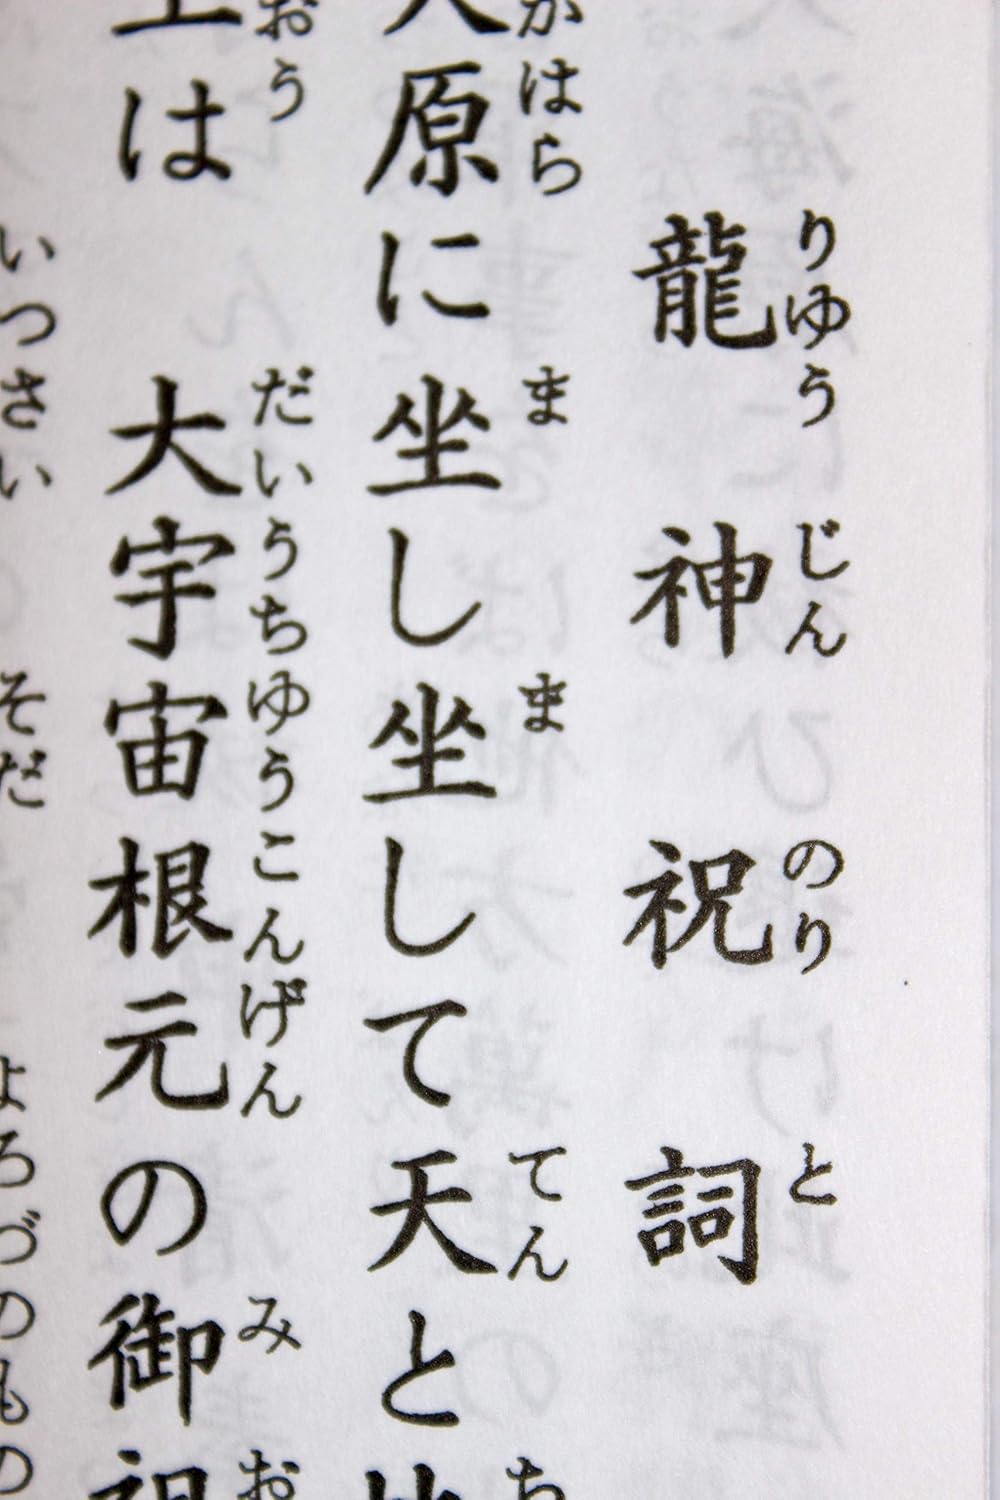 りゆうじんのりと
龍神祝詞
かはら ま ま てん ち
原に坐し坐して天と
おう だいうちゆうこんげん み お
は 大宇宙根元の御
いつさい そだ よろづのもの